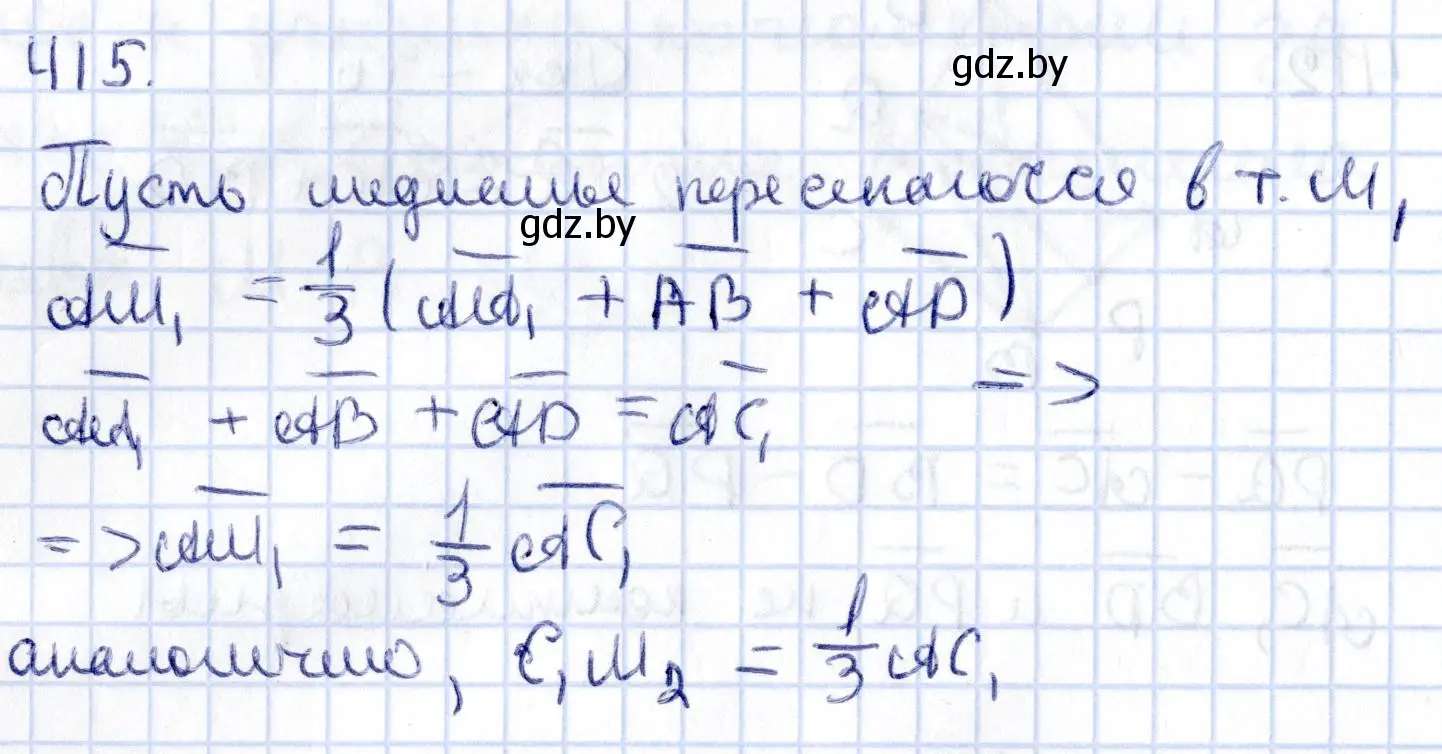 415.
gdz.by
Пусть медианы пересекаются в т. M₁
gdz.by
AM₁ = 1/3 (AA₁ + AB + AD)
AA₁ + AB + AD = AC₁ =>
=> AM₁ = 1/3 AC₁
аналогично, C₁M₂ = 1/3 AC₁